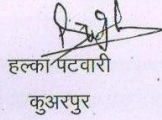 हल्का पटवारी
कुअरपुर